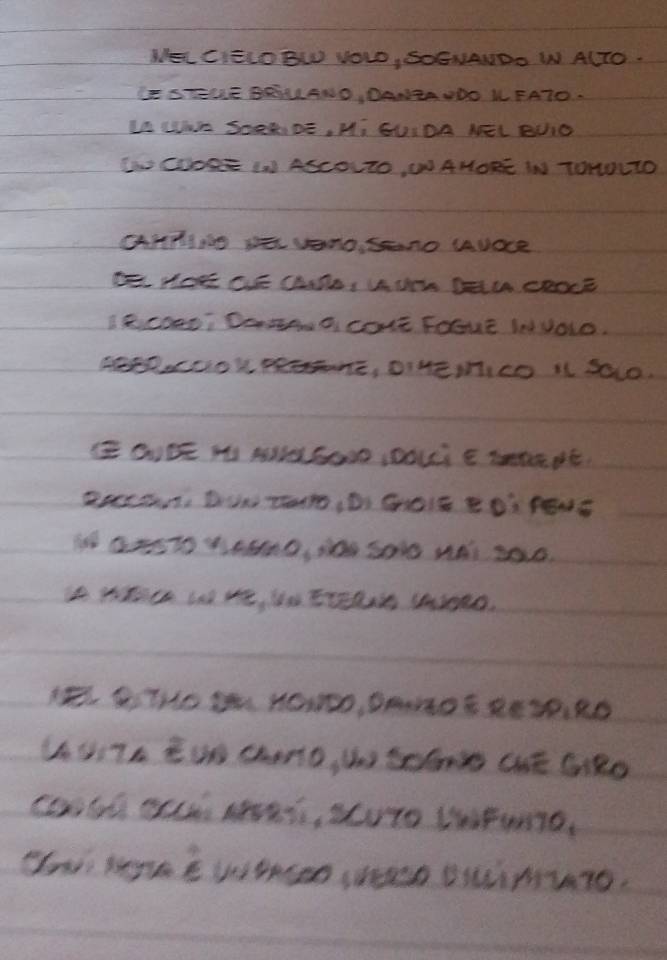 NEL CIELO BLU VOLO, SOGNANDO IN ALTO.
LE STELLE BRILLANO, DANZANDO IL FATO.
LA LUNA SORRIDE, MI GUIDA NEL BUIO
UN CUORE IN ASCOLTO, UN AMORE IN TUMULTO
CAMMINO NEL VENTO, SENTO LA VOCE
DEL MARE CHE CANTA, LA VITA DELLA CROCE
I RICORDI DANZANO, COME FOGLIE IN VOLO.
ABBRACCIO IL PRESENTE, DIMENTICO IL SOLO.
LE ONDE MI AVVOLGONO, DOLCI E SERENE.
RACCONTI D'UN TEMPO, DI GIOIE E DI PENE
IN QUESTO VIAGGIO, NON SONO MAI SOLO.
LA MUSICA IN ME, UN ETERNO LAVORO.
NEL RITMO DEL MONDO, DANZO E RESPIRO
LA VITA È UN CANTO, UN SOGNO CHE GIRO
CON GLI OCCHI APERTI, SCUTO L'INFINITO,
OGNI NOTA È UN PASSO, VERSO L'ILLIMITATO.